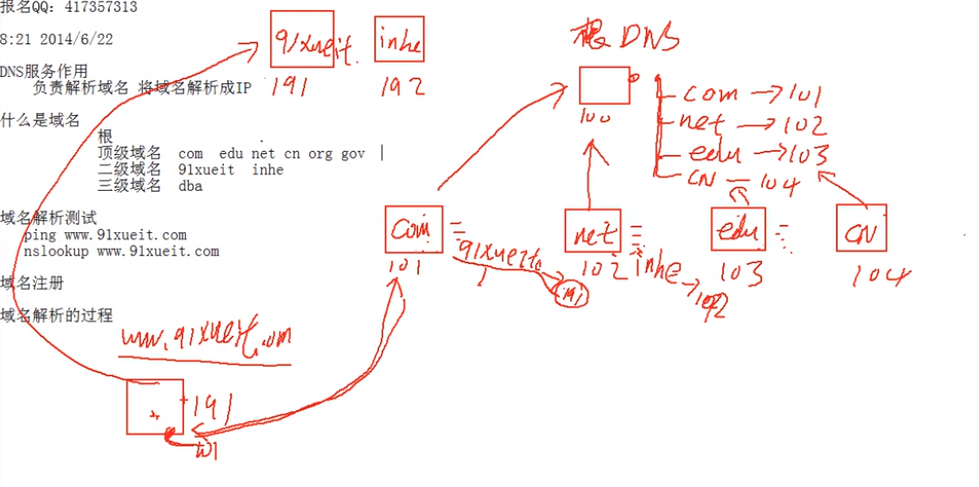 报名QQ: 417357313
8:21 2014/6/22
DNS服务作用
负责解析域名 将域名解析成IP
什么是域名
根
顶级域名 com edu net cn org gov
二级域名 91xueit inhe
三级域名 dba
域名解析测试
ping www.91xueit.com
nslookup www.91xueit.com
域名注册
域名解析的过程
www.91xueit.om
191
91xueit
191
inhe
192
根DNS
100
com → 101
net → 102
edu → 103
CN — 104
com
101
91xueit
net
102
inhe → 192
edu
103
CN
104